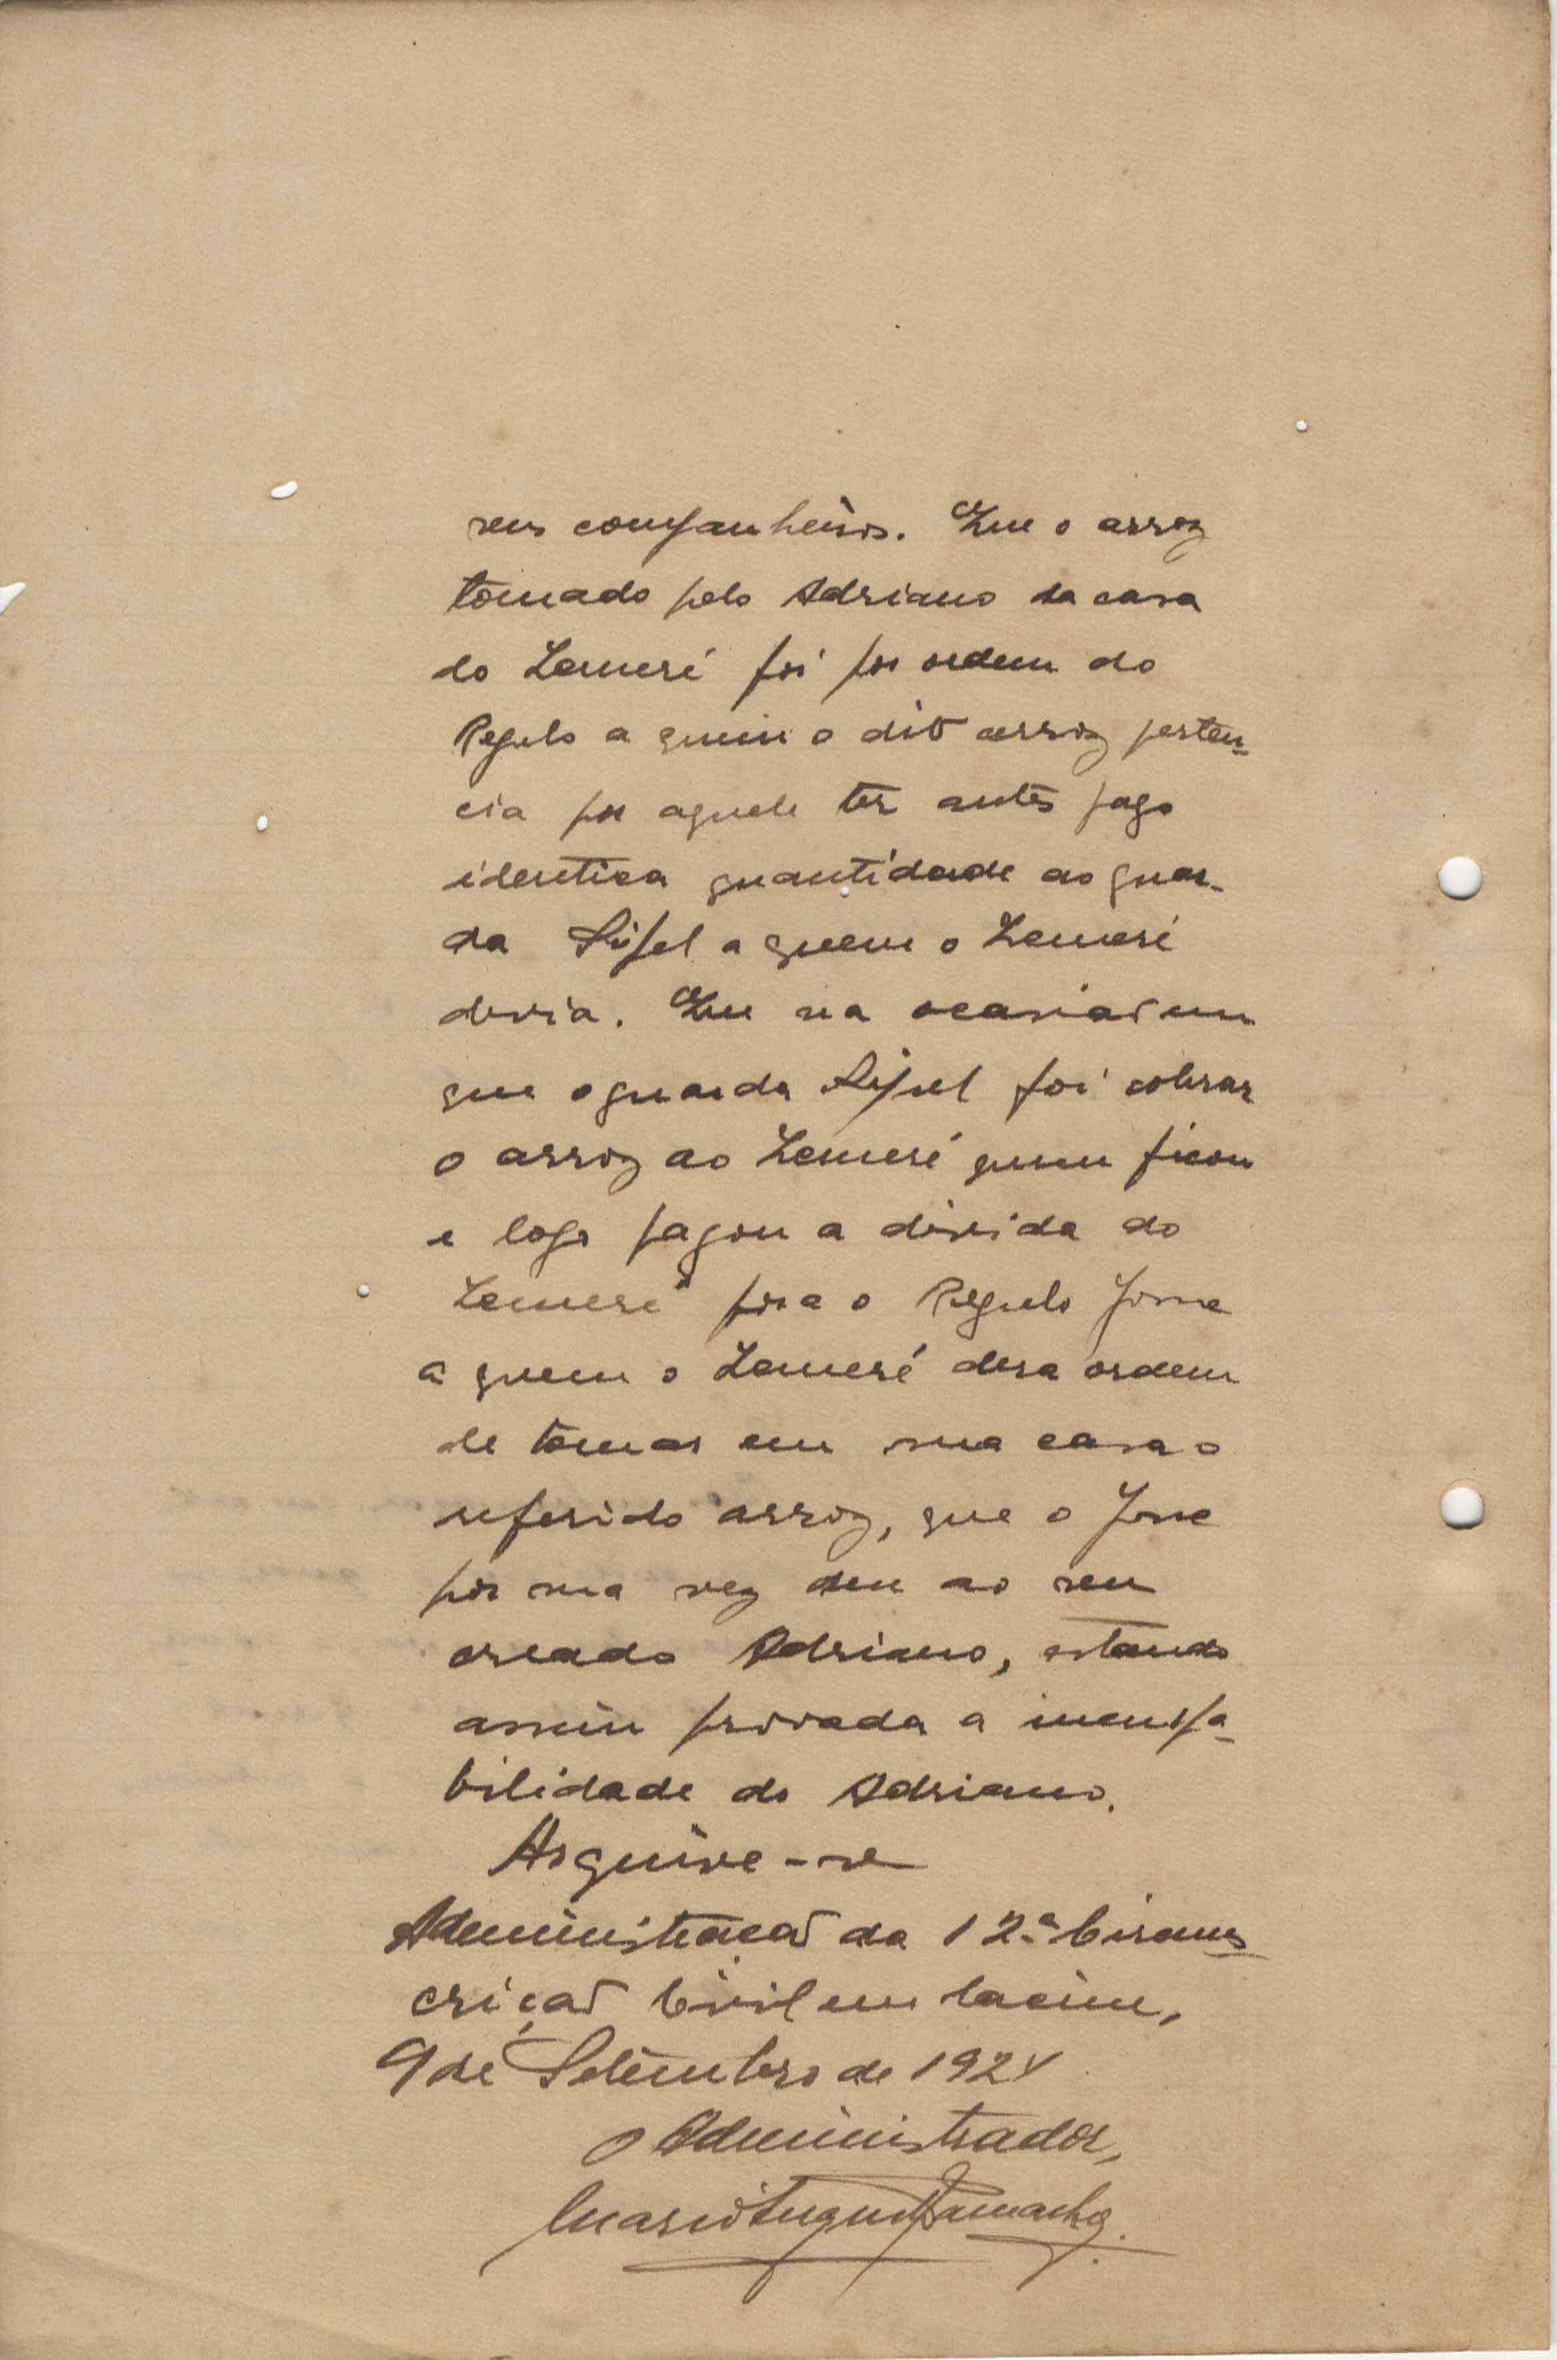 seus companheiros. Que o arroz
tomado pelo Adriano da casa
do Lemeré foi por ordem do
Regulo a quem o dito arroz perten-
cia por aquele ter antes pago
identica quantidade ao guar-
da a quem o Lemeré
devia. Que na ocasião em
que o guarda foi cobrar
o arroz ao Lemeré quem ficou
e logo pagou a divida do
Lemeré fora o Regulo Jorne
a quem o Lemeré dera ordem
de tomar em sua casa o
referido arroz, que o Jorne
por sua vez deu ao seu
creado Adriano, estando
assim provada a inculpa-
bilidade do Adriano.
Arquive-se
Administração da 12.ª Circuns
crição Civil em Cacine,
9 de Setembro de 192
O Administrador,